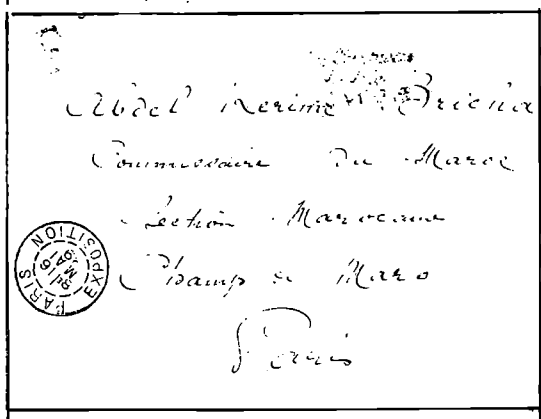 Abdel Kerim Bricha
Commissaire du Maroc
Section Marocaine
Champ de Mars
Paris
PARIS EXPOSITION